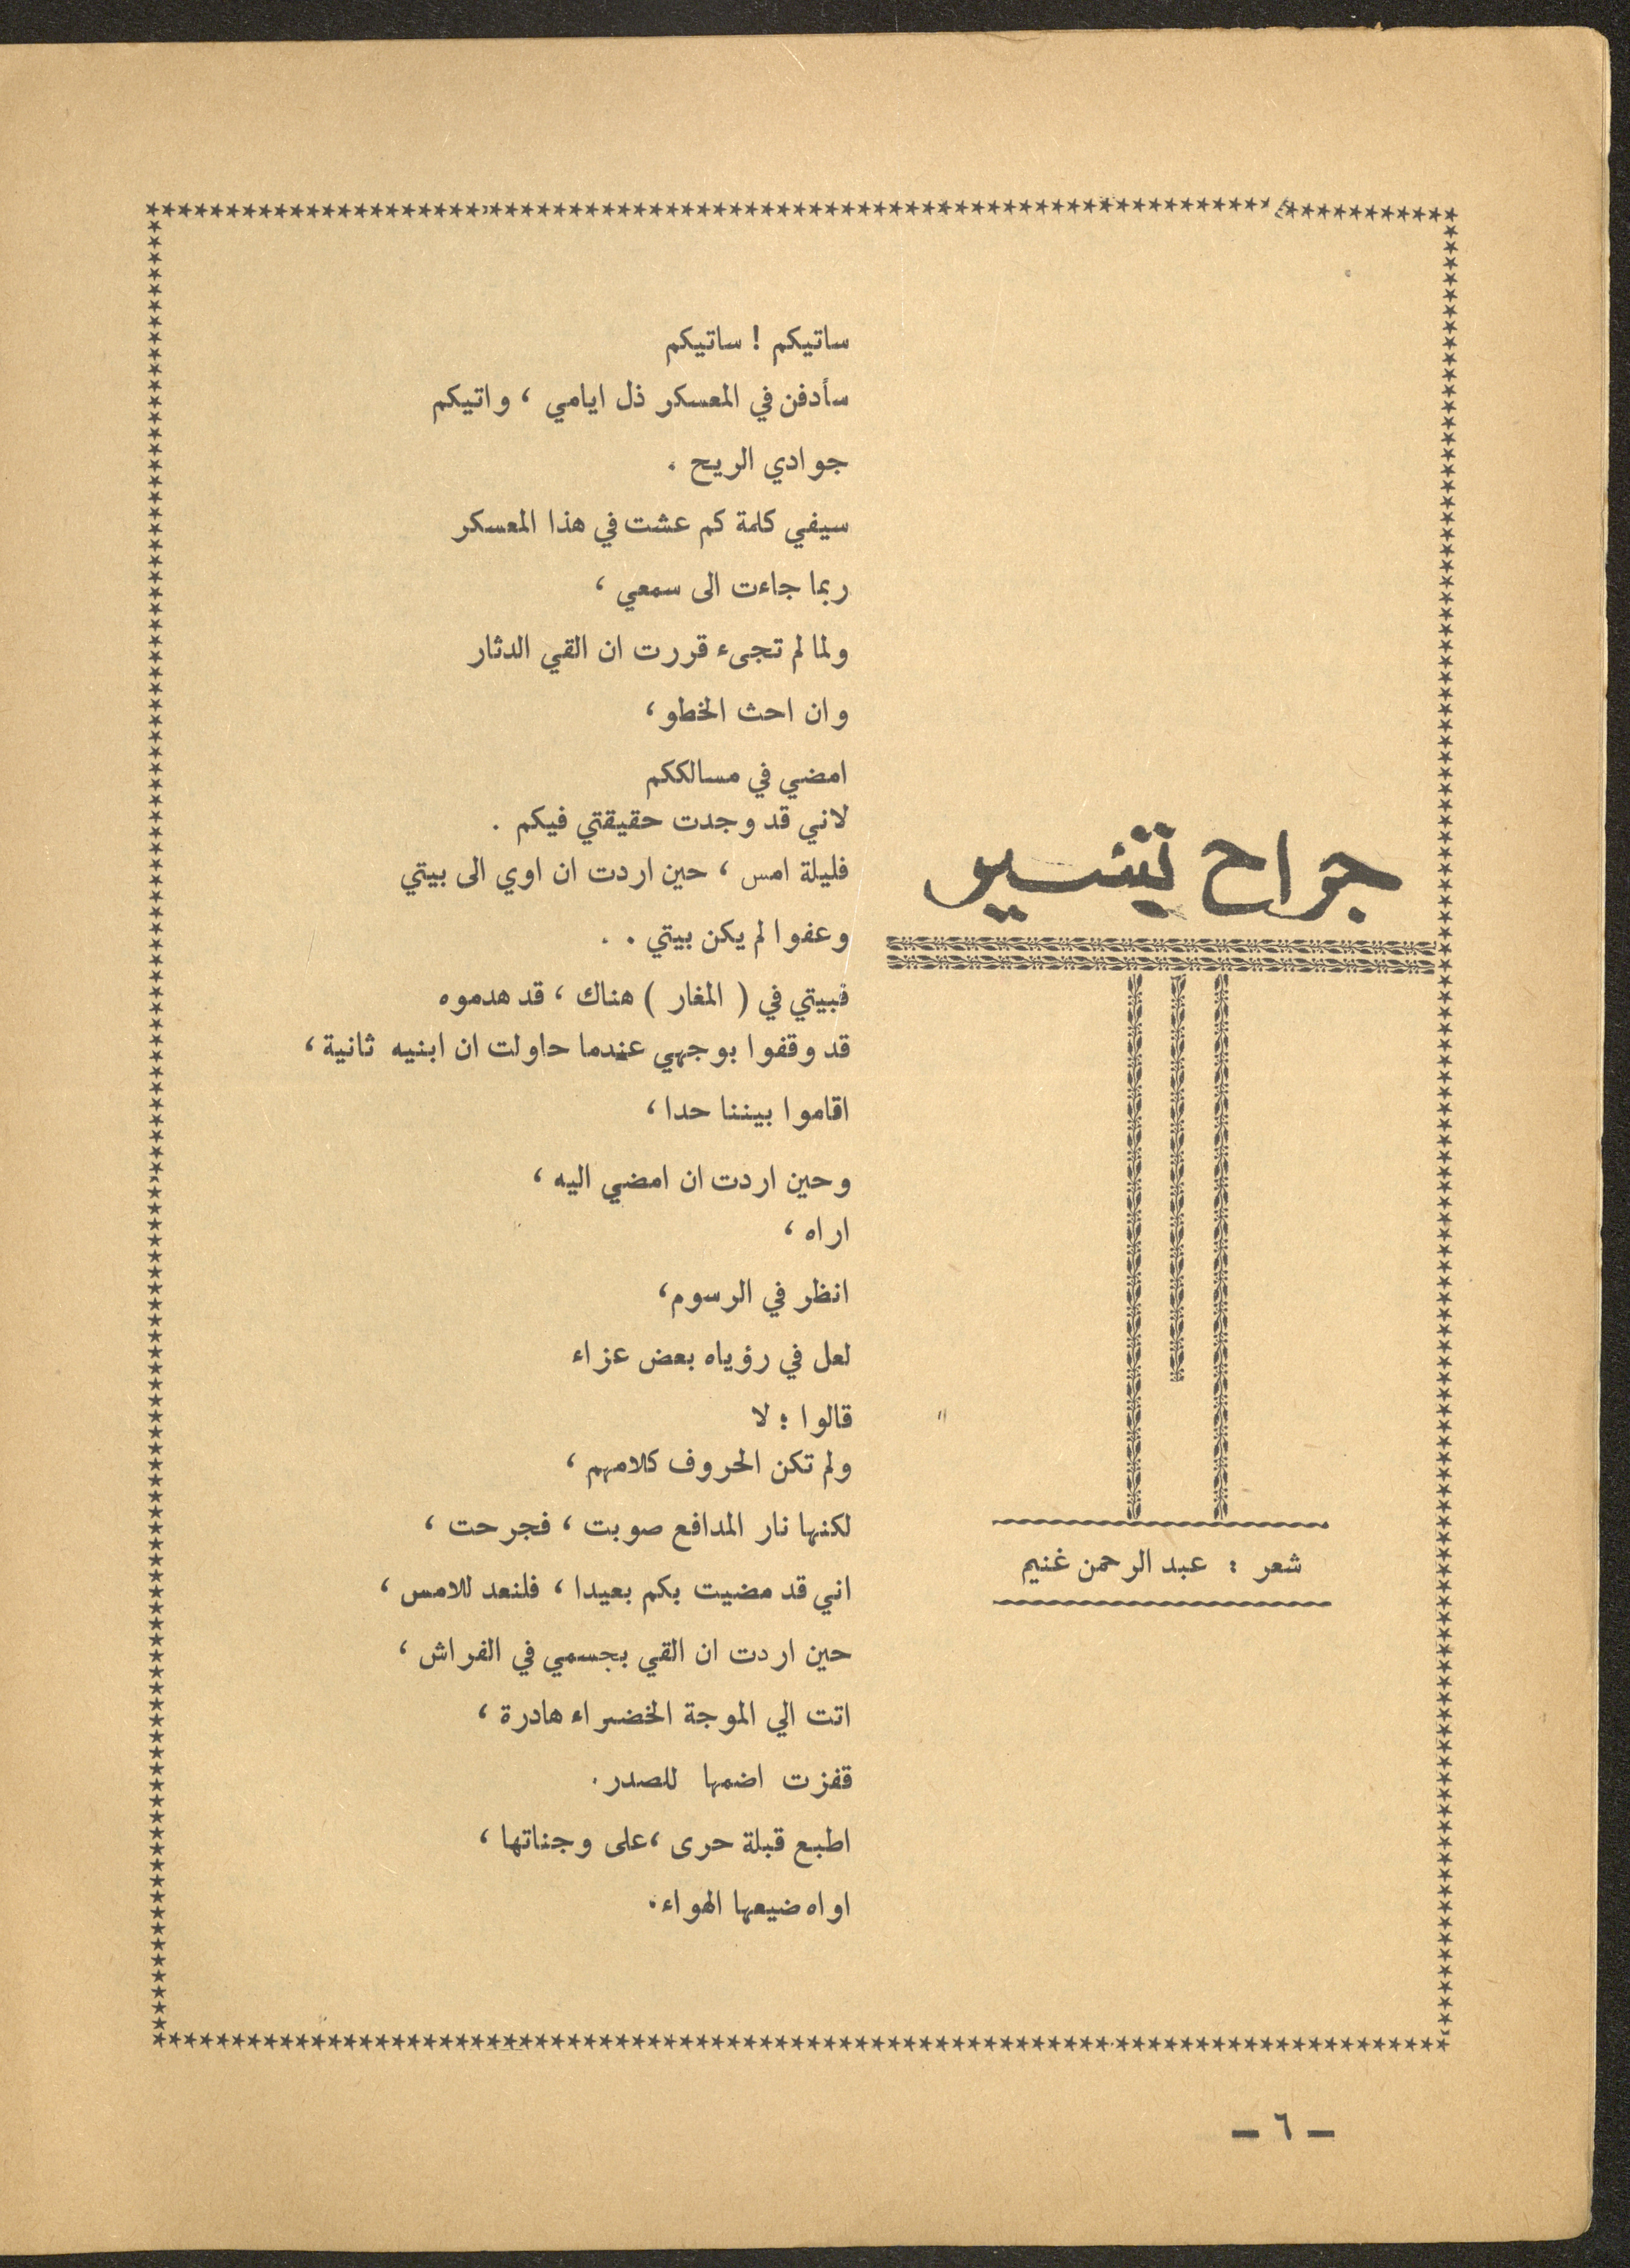 جراح تسير
شعر : عبد الرحمن غنيم
ساتيكم ! ساتيكم
سأدفن في المعسكر ذل ايامي ، واتيكم
جوادي الريح .
سيفي كلمة كم عشت في هذا المعسكر
ربما جاءت الى سمعي ،
ولما لم تجىء قررت ان القي الدثار
وان احث الخطو ،
امضي في مسالككم
لاني قد وجدت حقيقتي فيكم .
فليلة امس ، حين اردت ان اوي الى بيتي
وعفوا لم يكن بيتي . .
فبيتي في ( المغار ) هناك ، قد هدموه
قد وقفوا بوجهي عندما حاولت ان ابنيه ثانية ،
اقاموا بيننا حدا ،
وحين اردت ان امضي اليه ،
اراه ،
انظر في الرسوم ،
لعل في رؤياه بعض عزاء
قالوا : لا
ولم تكن الحروف كلامهم ،
لكنها نار المدافع صوبت ، فجرحت ،
اني قد مضيت بكم بعيدا ، فلنعد للامس ،
حين اردت ان القي بجسمي في الفراش ،
اتت الي الموجة الخضراء هادرة ،
قفزت اضمها للصدر .
اطبع قبلة حرى ، على وجناتها ،
اواه ضيعها الهواء .
- ٦ -